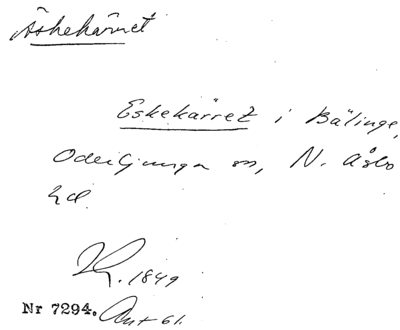 Äskekärret
Eskekärret i Bälinge,
Oderljunga sn, N. Åsbo
hd.
1849
Nr 7294. Ant 61.